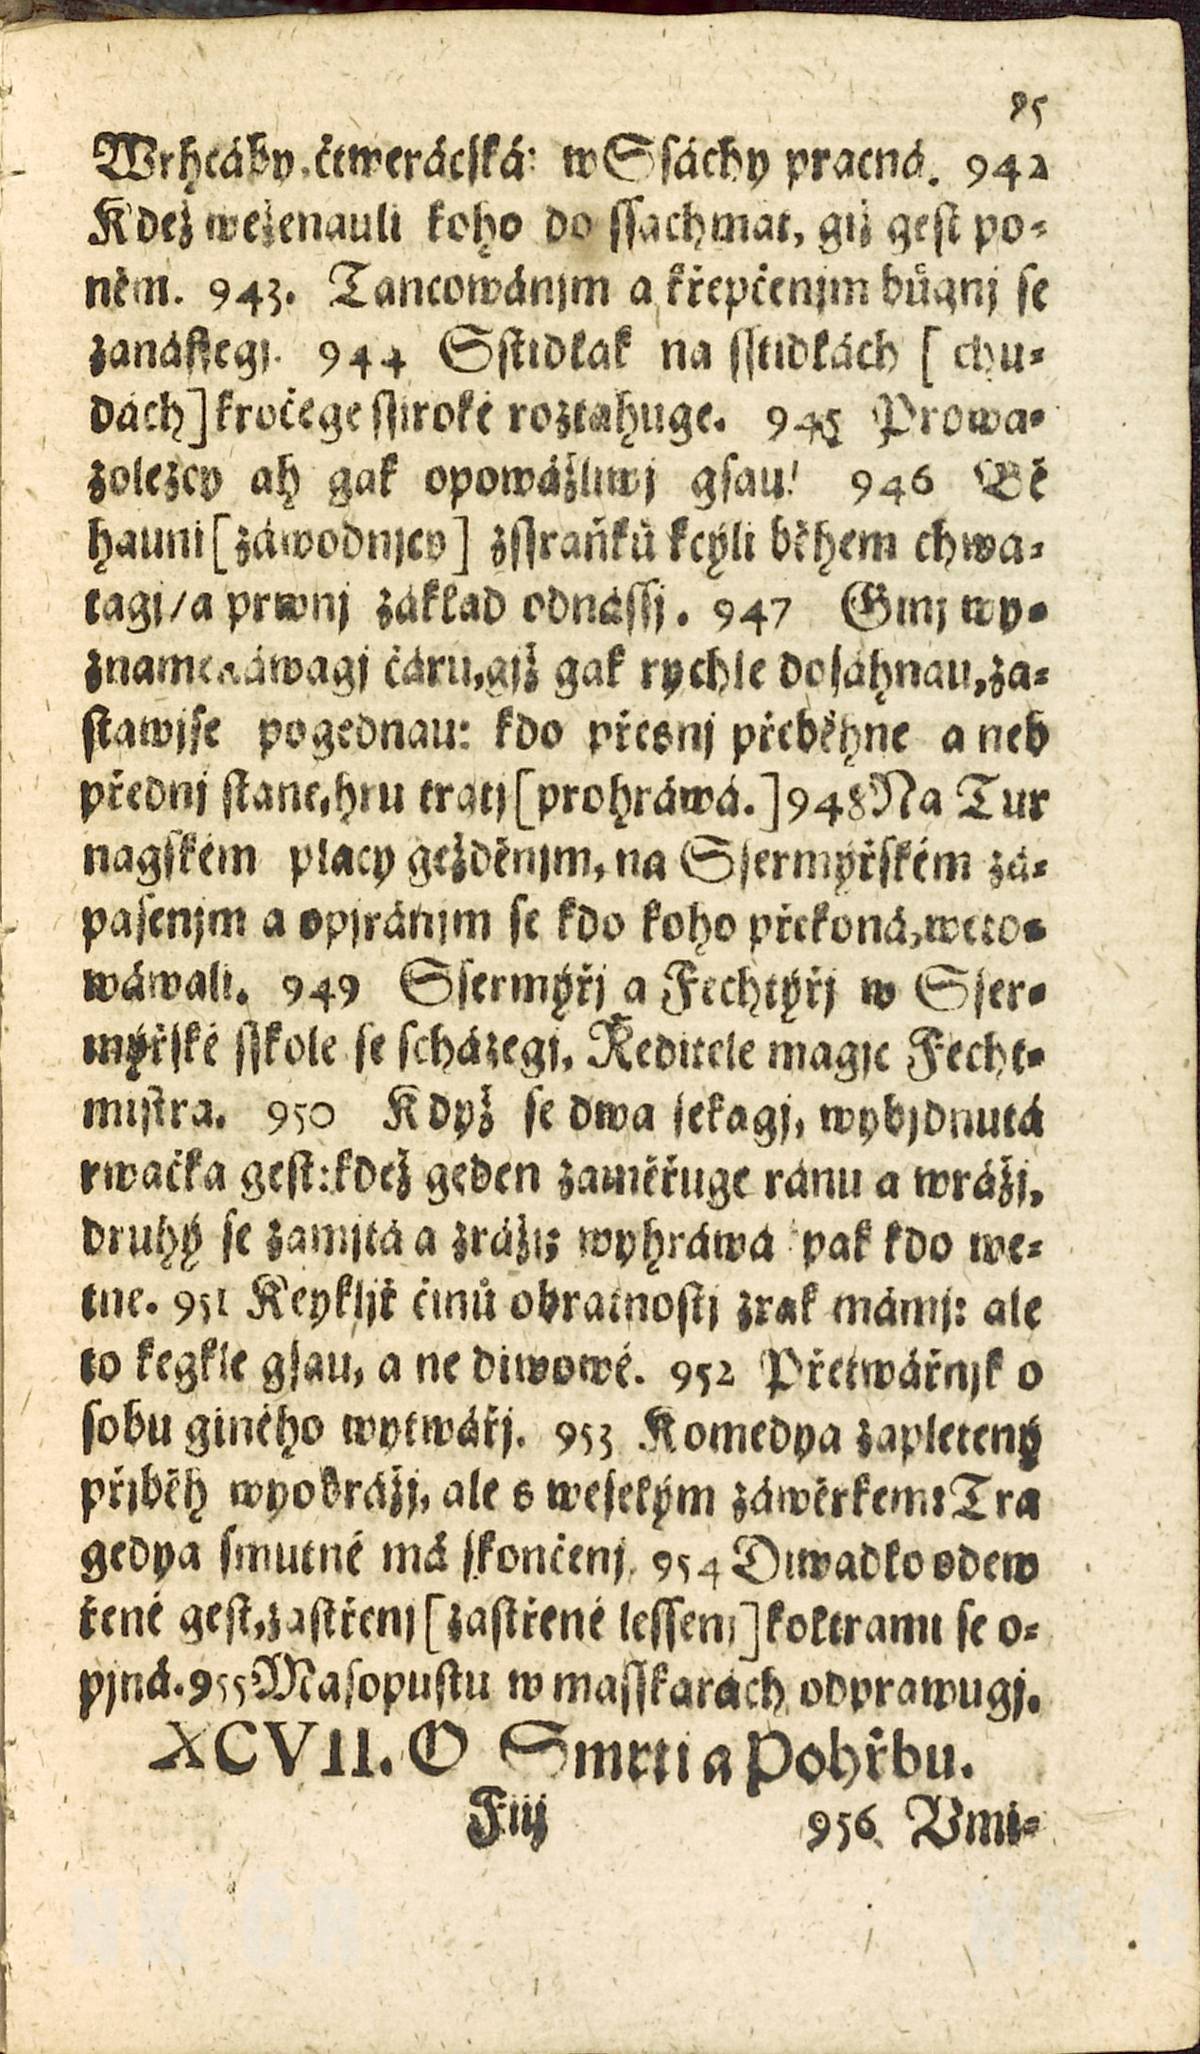 85
Wrhcáby, čtwerácská: w Ssáchy pracná. 942
Kdež weženauli koho do ssachmat, giž gest po-
něm. 943. Tancowánjm a křepčenjm bůgnj se
zanássegj. 944 Sstidlak na sstidlách [chu-
dách] kročege ssiroké roztahuge. 945 Prowa-
zolezcy ah gak opowážliwj gsau! 946 Bě
hauni [záwodnjcy] zssraňků kcýli během chwa-
tagj/a prwnj základ odnássj. 947 Ginj wy-
znamenáwagj čáru, gjž gak rychle dosáhnau, za-
stawjse pogednau: kdo přesnj přeběhne a neb
přednj stane, hru tratj [prohráwá.] 948 Na Tur
nagském placy gežděnjm, na Ssermýřském zá-
pasenjm a opjránjm se kdo koho překoná, weto-
wáwali. 949 Ssermýřj a Fechtýřj w Sser-
mýřské sskole se scházegj, Ředitele magjc Fecht-
mistra. 950 Když se dwa sekagj, wybjdnutá
rwačka gest: kdež geden zaměřuge ránu a wrážj,
druhý se zamjtá a zrážj; wyhráwá pak kdo we-
tne. 951 Keykljř činů obratnostj zrak mámj: ale
to kegkle gsau, a ne diwowé. 952 Přetwářnjk o
sobu giného wytwářj. 953 Komedya zapletený
přjběh wyobrážj, ale s weselým záwěrkem: Tra
gedya smutné má skončenj. 954 Diwadlo odew
řené gest, zastřenj [zastřené lessenj] koltrami se o-
pjná. 955 Masopustu w masskarách odprawugj.
XCVII. O Smrti a Pohřbu.
Fiij 956 Vmi-